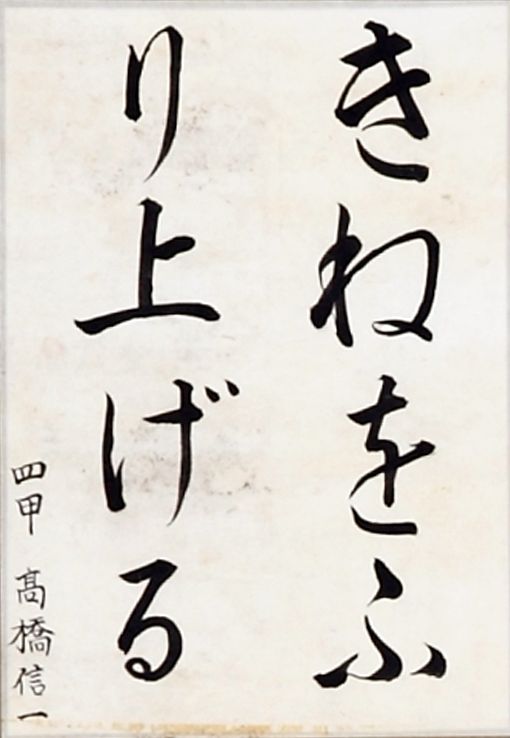 きねをふ
り上げる
四甲 髙橋信一